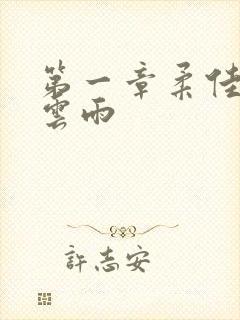 第一章柔佳
雲雨
許志安